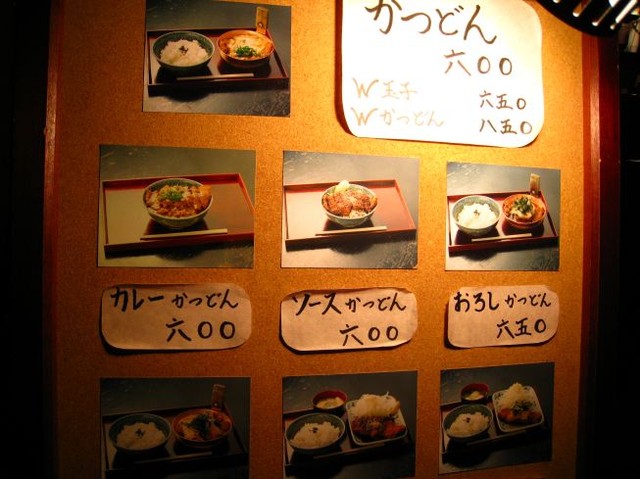 かつどん
六〇〇
W玉子 六五〇
Wかつどん 八五〇
カレーかつどん
六〇〇
ソースかつどん
六〇〇
おろしかつどん
六五〇